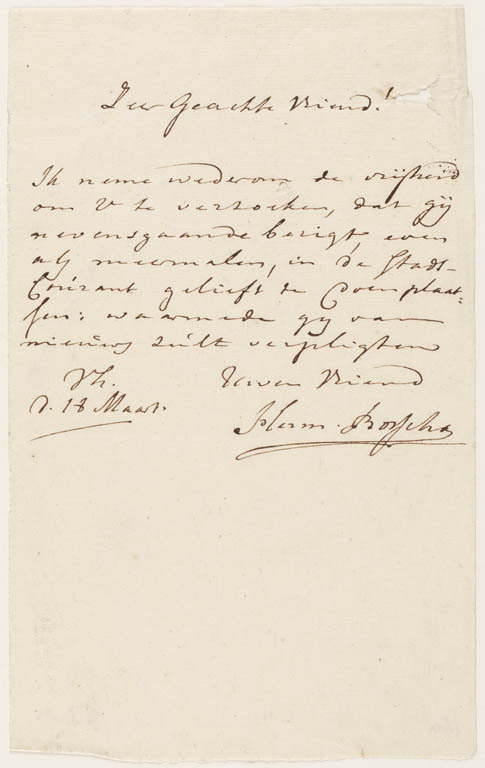 Zeer Geachte Vriend!
Ik neme wederom de vrijheid
om U te verzoeken, dat gij
nevensgaande berigt, even
als meermalen, in de Stads-
Courant gelieft te doen plaat-
sen: waarmede gij van
nieuws zult verpligten
Th. Uwen Vriend
d. 18 Maart. Herm. Bosscha